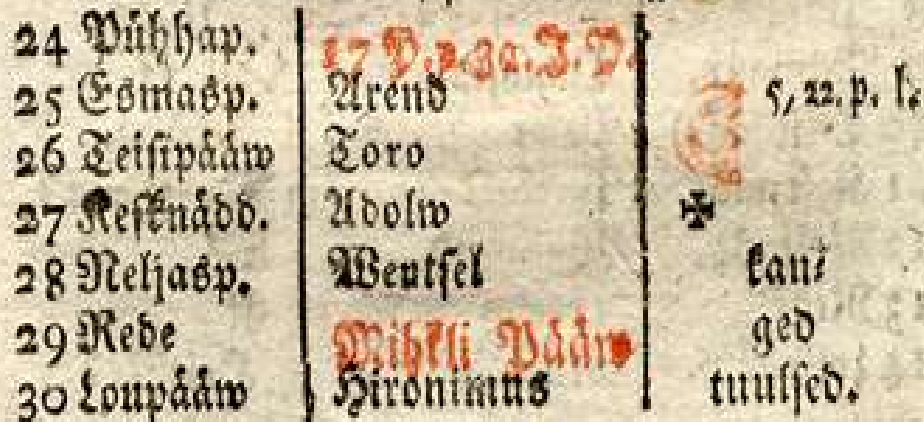 24 Pühhap. 17 P. p. 3a. J. P.
25 Esmasp. Arend 5, 22. p. l.
26 Teisipääw Toro
27 Keſknädd. Adolw ✠
28 Neljasp. Wentſel kan⸗
29 Rede Mihkli Pääw ged
30 Loupääw Hironimus tuulſed.